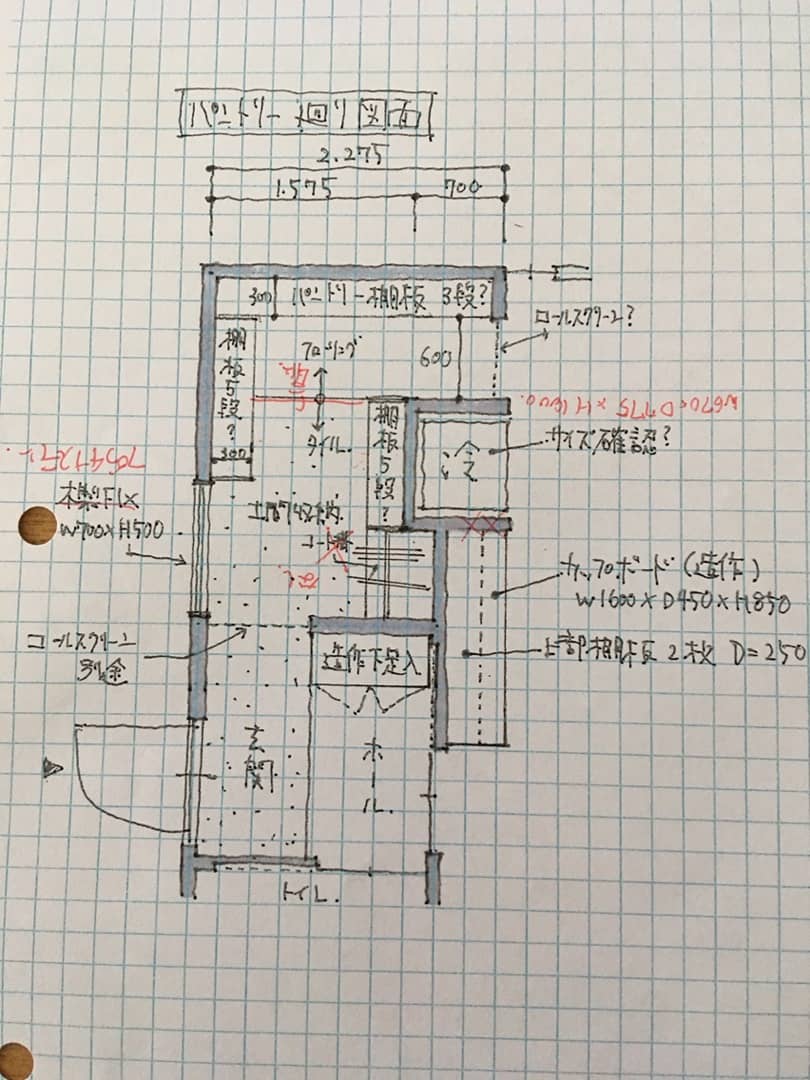 パントリー廻り図面
2.275
1.575
700
300
パントリー棚板 3段?
ロールスクリーン?
棚板5段?
フローリング
600
W670×D775×H1800.
タイル.
棚板5段?
冷
サイズ確認?
300
木製FIX
W700×H500
土間収納
コート掛
カップボード(造作)
W1600×D450×H850
ロールスクリーン
別途
造作下足入
上部棚板2枚 D=250
玄関
ホール.
トイレ.